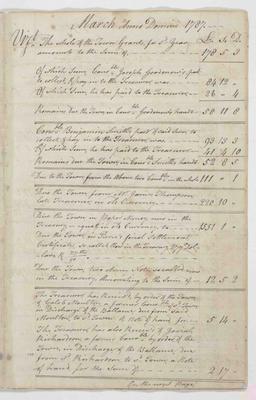 March Anno Domini 1787.
Vizt. The whole of the Town Grant, for sd. year, £. S. D.
amounts to the Sum of 178 5 3
Of which Sum, Constl. Joseph Goodenow's part
to collect, & pay in to the Treasurer 84 12 -
Of which Sum, he has paid to the Treasurer 26 - 4
Remains due the Town, in Constl. Goodenow's hands 58 11 8
Constl. Benjamin Smith's part of said Sum, to
collect & pay in to the Treasurer was 93 13 3
Of which Sum, he has paid to the Treasurer 41 4 10
Remains due the Town, in Constl. Smith's hands 52 8 5
Due to the Town from the above two Constl. in the whole 111 - 1
Due the Town, from Mr. James Thompson,
late Treasurer, in old Currency 220 10 -
Due the Town in Paper Money now in the
Treasury, equal in old Currency, to
Due the Town in
Certificate
Due the Town, two Notes, now
in the Treasury, Amounting to the Sum of 12 5 2
The Treasurer has Receiv'd, by order of the Town,
of Caleb Moulton, a former Constl.
in Discharge of the Ballance due from said
Moulton, to sd. Town, a Note of hand for 5 14 -
The Treasurer has also Receiv'd of Josiah
Richardson, a former Constl. by order of the
Town, in Discharge of the Ballance, due
from sd. Richardson to sd. Town, a Note
of hand for the Sum of 2 17 -
On the next Page